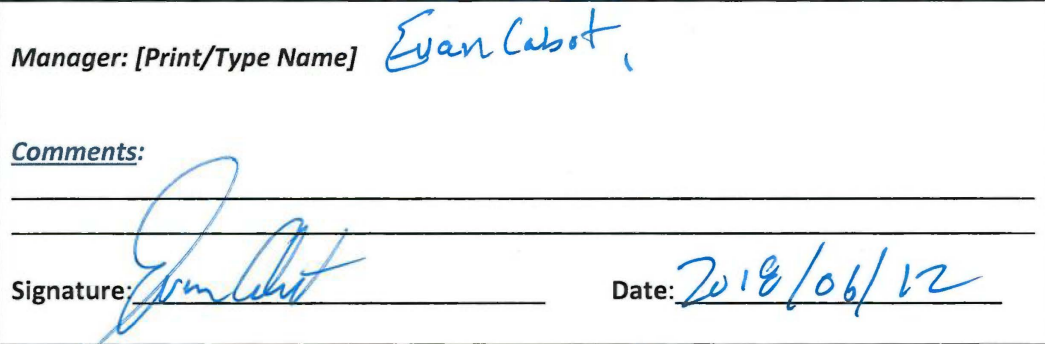 Manager: [Print/Type Name] Evan Cabot,
Comments:
Signature: Evan Cabot Date: 2018/06/12